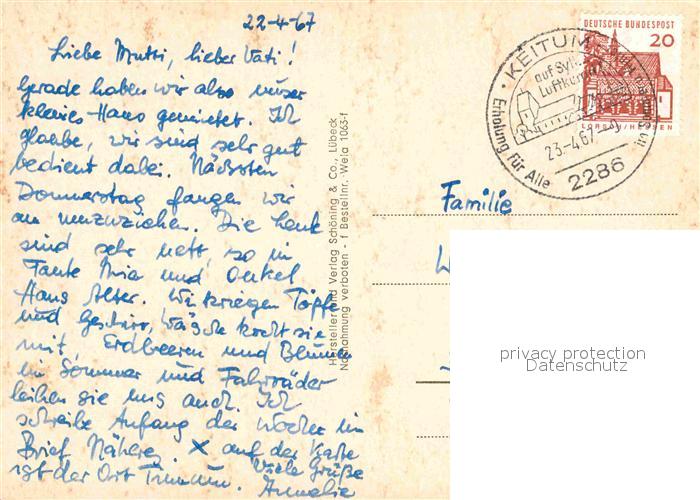 22-4-67
Liebe Mutti, lieber Vati!
Gerade haben wir also unser
kleines Haus gemietet. Ich
glaube, wir sind sehr gut
bedient dabei. Nächsten
Donnerstag fangen wir
an umzuziehen. Die Leute
sind sehr nett, so in
Tante Mia und Onkel
Hans Alter. Wir kriegen Töpfe
und Geschirr, Wäsche kocht sie
mit, Erdbeeren und Blumen
im Sommer und Fahrräder
leihen sie uns auch. Ich
schreibe Anfang der Woche im
Brief Näheres. X auf der Karte
ist der Ort Tinnum. Viele Grüße
Annelie
Hersteller und Verlag Schöning & Co., Lübeck
Nachahmung verboten - f Bestellnr. Wela 1063-f
DEUTSCHE BUNDESPOST
20
LORSCH/HESSEN
KEITUM
auf Sylt
Luftkurort
Erholung für Alle
23.-4.67
2286
Familie
privacy protection
Datenschutz